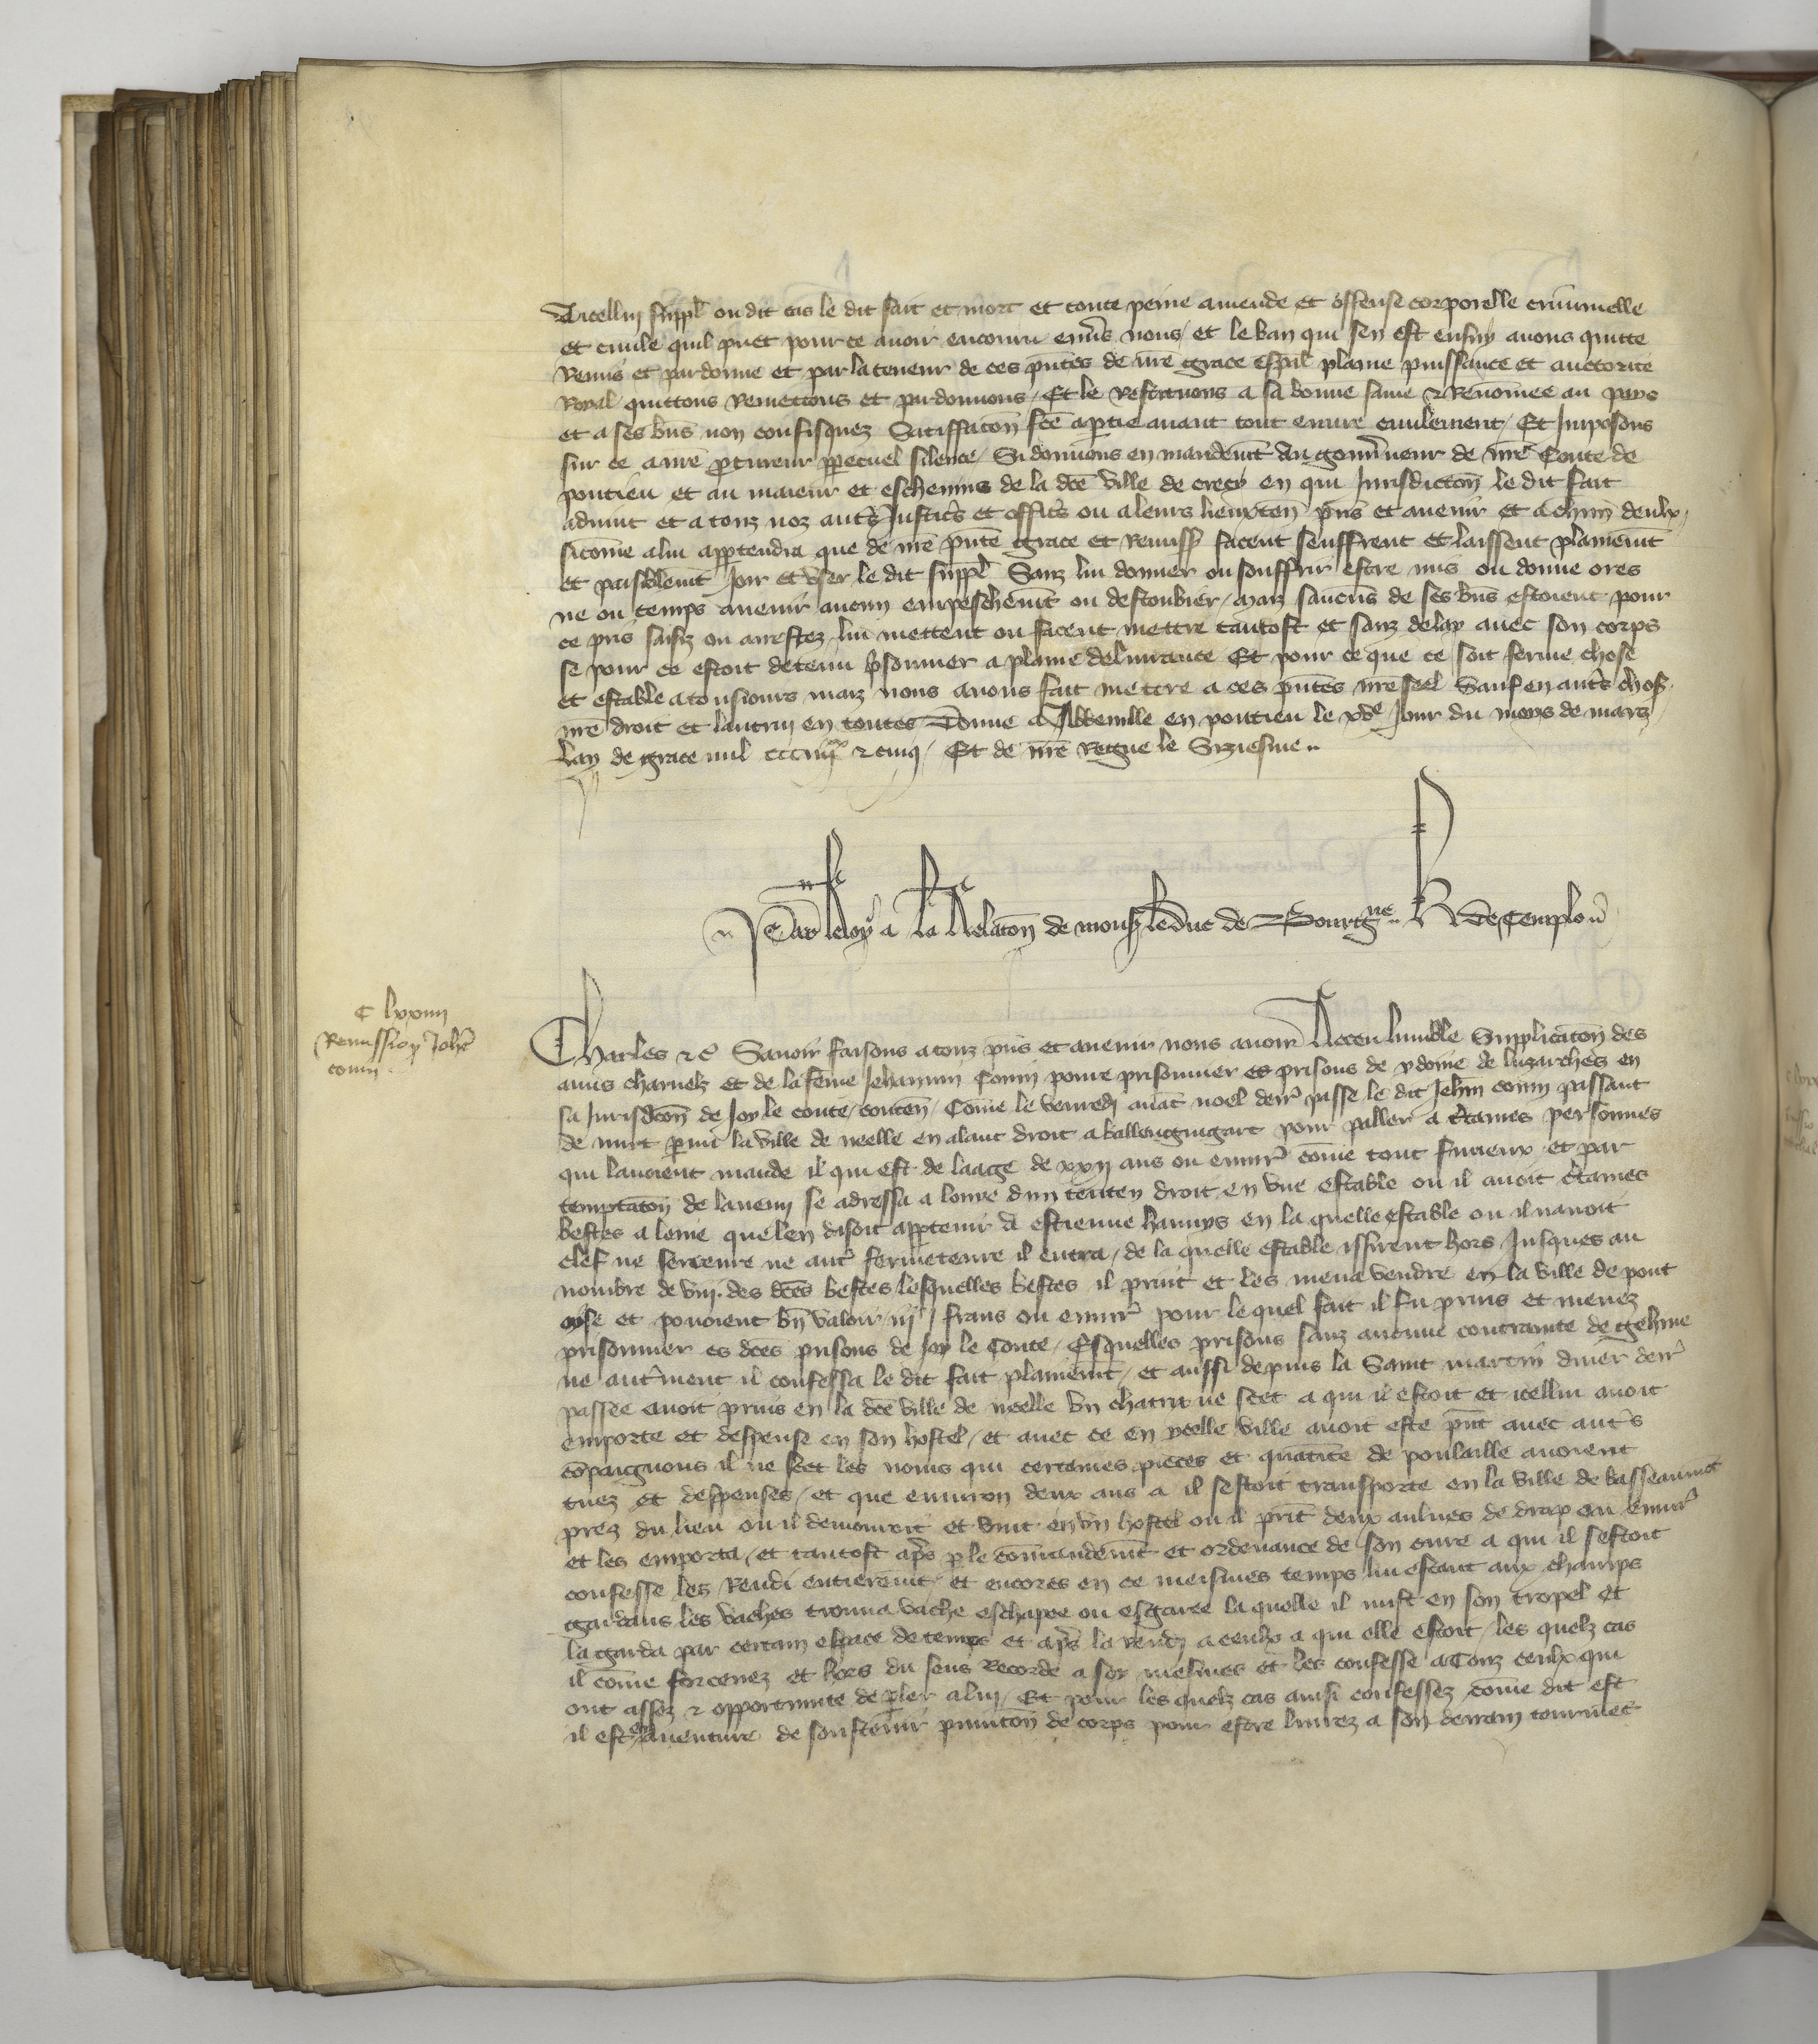 A icellui suppl ou dit cas le dit fait et mort et toute peine amende et offense corporelle criminelle
et civile quil puet pour ce avoir encouru envers nous / et le ban qui sen est ensuy avons quitte
Remis et pardonne et par la teneur de ces pntes de nre grace espal plaine puissance et auctorite
Royal quittons remettons et pardonnons / Et le restituons a sa bonne fame & Renomee au pays
et a ses bns non confisquez Satiffacon fce a partie avant tout euvre civilement / Et Imposons
sur ce a nre pcureur ppetuel silence / Si donnons en mandemt Au gouvneur de nre Conte de
pontieu et au maieur et eschevins de la dce ville de crecy en qui Jurisdicton le dit fait
advint et a touz noz auts Justics et offics ou a leurs lieuxten pns et avenir et a chun deulx /
sicome a lui apptendra que de nre pnte grace et Remiss facent seuffrent et laissent plainemt
et paisiblemt Joir et user le dit suppl Sanz lui donner ou souffrir estre mis ou donne ores
ne ou temps avenir aucun empeschemt ou destoubier / maiz saucus de ses bns estoient pour
ce pris saisiz ou arrestez lui mettent ou facent mettre tantost et sanz delay avec son corps
se pour ce estoit detenu prsonnier a plaine delivrance Et pour ce que ce soit ferme chose
et estable a tousiours maiz nous avons fait mettre a ces pntes nre seel Sauf en auts chos
nre droit et lautrui en toutes Donne a Abbeville en pontieu le Jour du moys de marz
Lan de grace mil cccIIIIxx & cinq / Et de nre Regne le Siziesme
Par le Roy a la Relacon de mons le Duc de Bourgne H De Templou
C lxxiiii
Remission Jehn
covin
Charles &c Savoir faisons a touz pns et avenir nous avoir Receu lumble Supplicacon des
amis charnelz et de la feme Jehannin Covin povre prisonnier es prisons de ydoine de luzarches en
sa Jurisdcon de Joy le conte / conten / Come le venredi avat noel derr passe le dit Jehn covin passant
de nuit pmi la ville de neelle en alant droit a ballengnigart pour paller a ctaines personnes
qui lavoient mande il qui est de laage de xxii ans ou envir come tout furieux et par
temptacon de lanemi se adressa a droit en une estable ou il avoit ctaines
bestes a leine que len disoit apptenir A estienne hannys en la quelle estable ou il navoit
clef ne serreure ne autr fermeteure il entra / de la quelle estable issirent hors Jusques au
nombre de viii. des dces bestes lesquelles bestes il print et les mena vendre en la ville de pont
oise et povoient bn valoir iii frans ou envir pour le quel fait il fu prins et menez
prisonnier es dces prisons de Joy le Conte / Esquelles prisons sanz aucune contrainte de gehine
ne autrment il confessa le dit fait plainemt / et aussi depuis la Saint martin diver derr
passee avoit prins en la dce ville de neelle un chatrit ne scet a qui il estoit et icellui avoit
emporte et despense en son hostel / et avec ce en ycelle ville avoit este pnt avec auts
copaignons il ne scet les noms qui certaines pieces et quatite de poulaille avoient
tuez et despenses / et que environ deux ans a il sestoit transporte en la ville de
prez du lieu ou il demouroit et vint en un hostel ou il prit deux aulnes de drap ou envir
et les emporta / et tantost aps p le comandemt et ordenance de son cure a qui il sestoit
confesse les Rendi entieremt et encores en ce meismes temps lui estant aux champs
gardans les vaches trouva vache eschapee ou esgaree la quelle il mist en son tropel et
la garda par certain espace de temps et aps la rendi a ceulx a qui elle estoit / les quelz cas
il come forcenez et hors du sens Recorde a soy mesmes et les confesse a touz ceulx qui
ont assez & opportunite de pler a lui / Et pour les quelz cas ainsi confessez come dit est
il est en aventure de soustenir punicon de corps pour estre livrez a son derrain tourmet